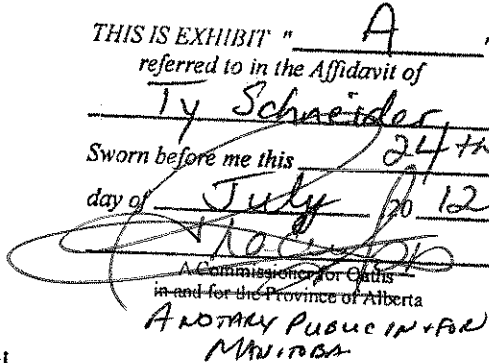 THIS IS EXHIBIT " A "
referred to in the Affidavit of
Ty Schneider
Sworn before me this 24th
day of July 20 12
A Commissioner for Oaths
in and for the Province of Alberta
A NOTARY PUBLIC IN + FOR
MANITOBA